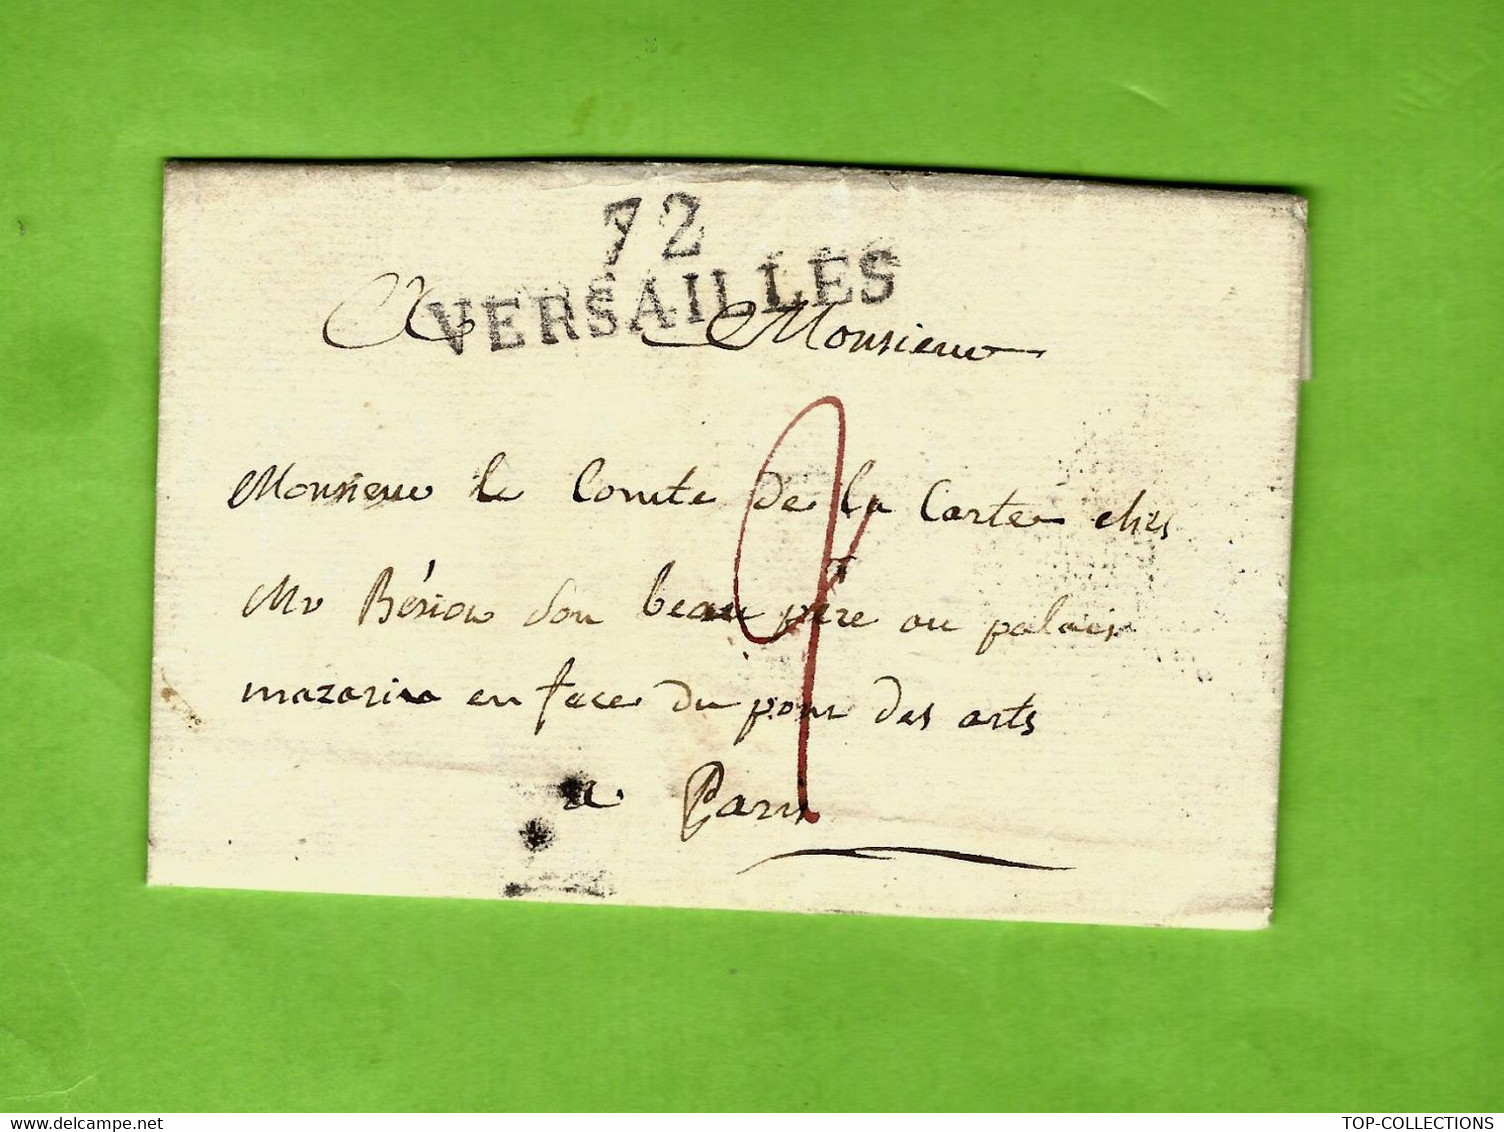 72
VERSAILLES
A Monsieur
Monsieur le Comte de la Carte chez
Mr son beau père au palais
mazarin en face du pont des arts
a Paris
delcampe.net
TOP-COLLECTIONS